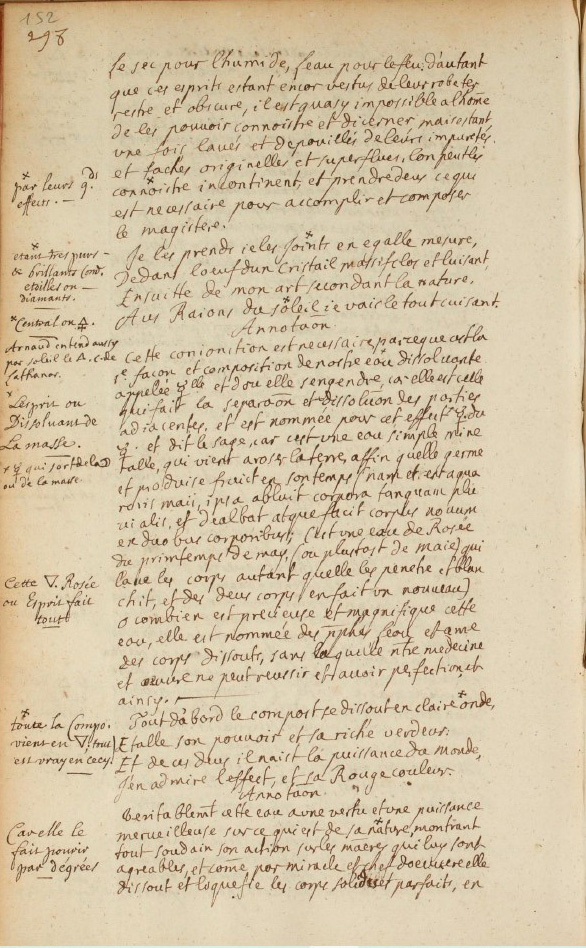 152
298
le sec pour l'humide, l'eau pour le feu; d'autant
que ces esprits estant encor vestus de leur robe ter
restre et obscure, il est quasy impossible a l'home
de les pouvoir connoistre et dicerner mais estant
une fois lavés et depouillés de leurs impuretés
et taches originelles et superflues, l'on peut les
connoistre incontinent, et prendre deux ce qui
est necessaire pour accomplir et composer
le magistere.
par leurs
effects. —
Je les prends ie les joints en egalle mesure,
Dedans l'oeuf dun Cristail massif clos et luisant,
Ensuitte de mon art secondant la nature,
Aus Raions du soleil ie vais le tout cuisant.
estant tres purs
& brillants com̄e
etoilles ou
diamants.
Central ou 🜂.
Annotaõn.
Arnaud entend aussy
par soleil le 🜂 c. de
l'athanor.
Cette conionction est necessaire parceque cest la
façon et composition de nostre eau dissolvante
appelée ☿ elle et dou elle sengendre, car elle est celle
qui fait la separaõn et dissoluõn des parties
adiacentes, et est nommée pour cet effect ☿ du
☿. et dit le sage, car cest une eau simple mine
ralle, qui vient aroser la terre, affin quelle germe
et produise fruict en son temps (nam et est aqua
roris maii, ipsa abluit corpora tanquam plu
vialis, et dealbat atque facit corpus novum
en duobus corporibus; Cest une eau de Rosée
du primtemps de may, (ou plustost de maie) qui
lave les corps autant quelle les penetre et blan
chit, et des deux corps en fait un nouveau)
L'esprit ou
Dissolvant de
La masse.
☿ qui sort de la
ou de la masse
Cette 🜄. Rosée
ou Esprit fait
tout
o combien est precieuse et magnifique cette
eau, elle est nommée des pphes l'eau et ame
des corps dissouts, sans laquelle ntre medecine
et oeuvre ne peut reussir et avoir perfection, et
ainsy.
Tout d'abord le compost se dissout en claire onde,
Etalle son pouvoir et sa riche verdeur:
Et de ces deux il naist la puissance du monde,
J'en admire l'effect, et sa Rouge couleur.
toute la Compo.
vient en 🜄, tout
est vray en cecy.
Annotaõn.
Veritablemt cette eau a une vertu et une puissance
merveilleuse sur ce qui est de sa nature, montrant
tout soudain son action sur les maeres qui luy sont
agreables, et come par miracle et chef doeuvre elle
dissout et liqueffie les corps solides et parfaits, en
Car elle le
fait pourir
par dégrées